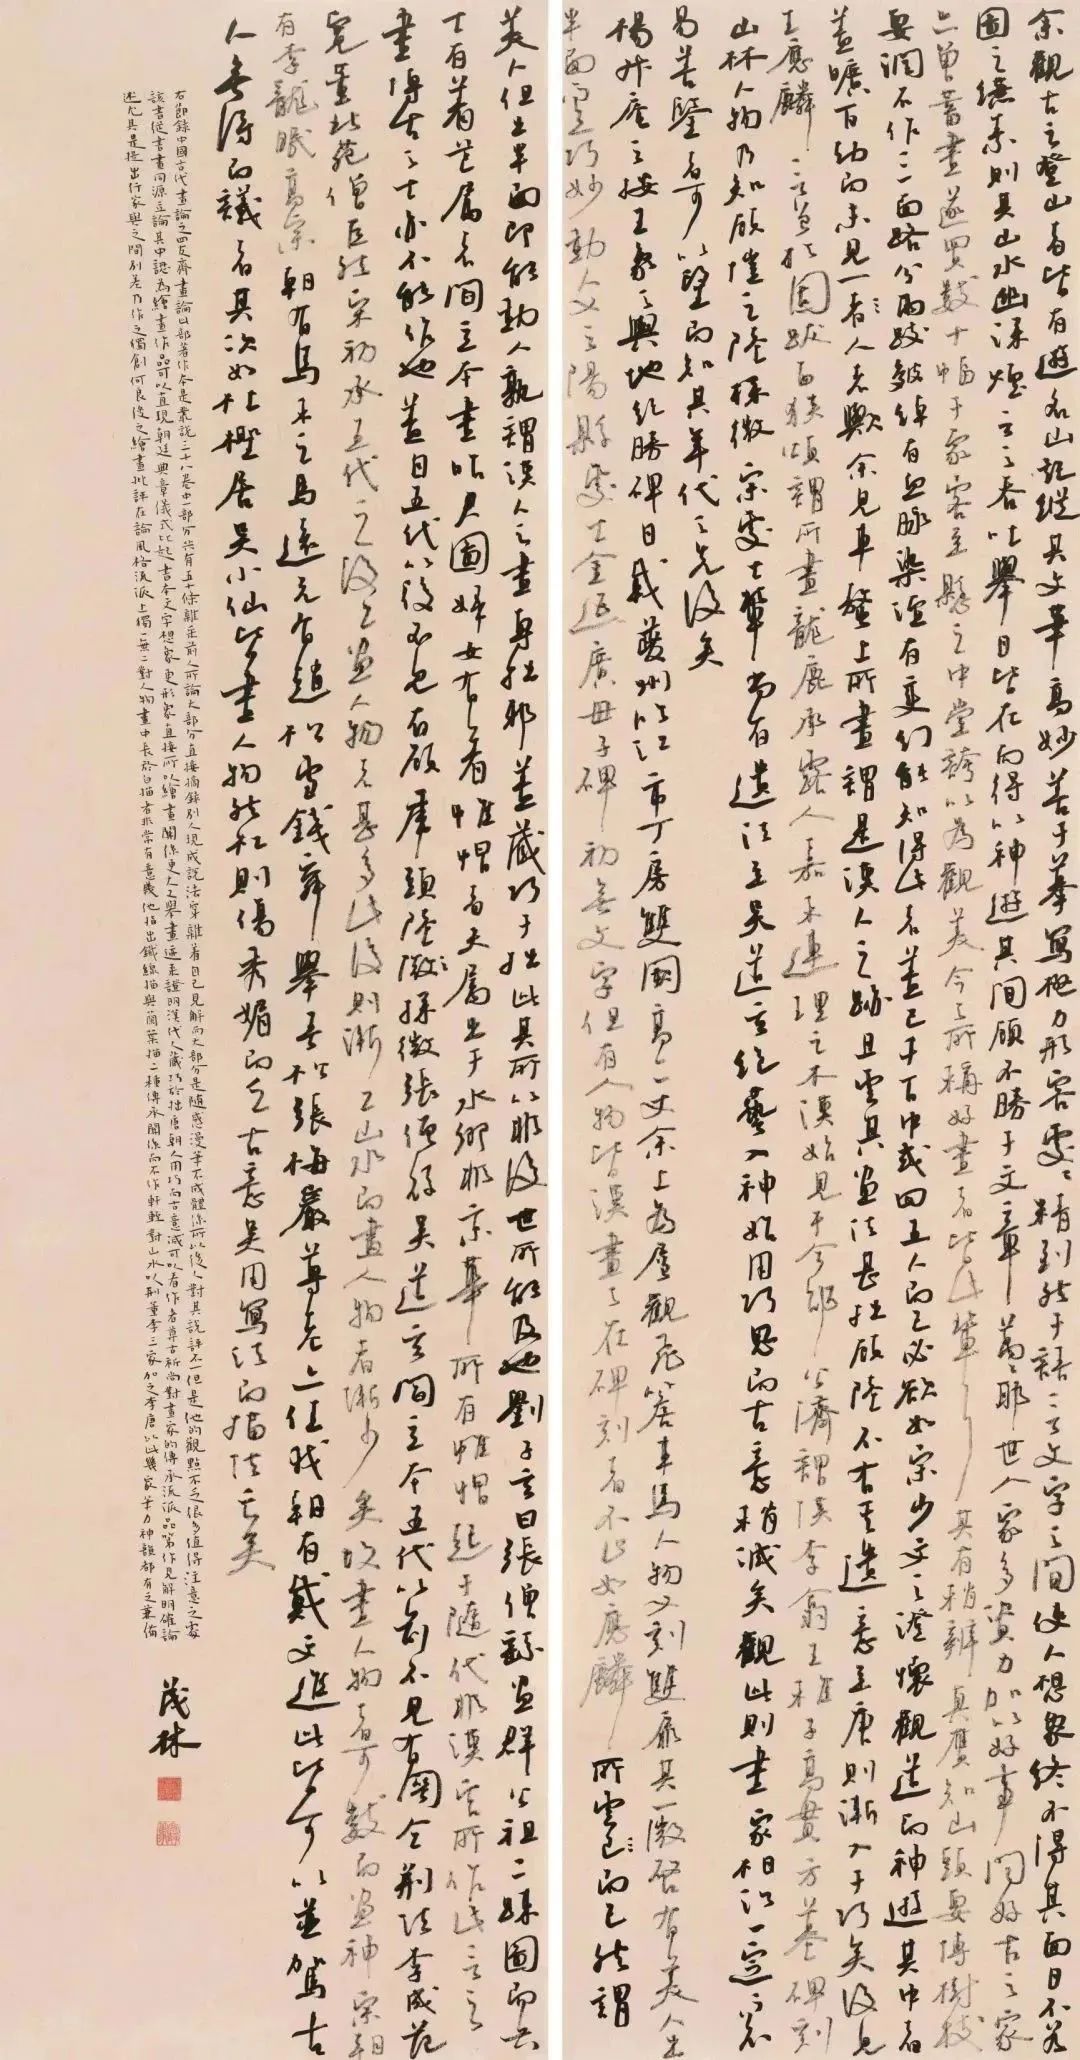 余觀古之登山者皆有遊名山記縱其文華高妙善于摹寫極力形容處〻精到然于語言文字之間使人想象終不得其面目不若
圖之縑素則其山水幽深煙雲之吞吐舉目皆在而得以神遊其間顧不勝于文章萬〻耶世人家多資力加以好事聞好古之家
亦曾蓄畫遂買數十幅于家客至懸之中堂誇以為觀美今之所稱好畫者皆此輩耳其有稍辨真贋知山頭要博樹枝
要潤石作三面路分兩蹊皴綽有血脉染渲有變幻能知得此者蓋已千百中或四五人而已必欲如宗少文之澄懷觀道而神遊其中者
蓋曠百劫而未見一者人者歟余見車螯上所畫謂是漢人之跡且雲其畫法甚拙顧陸尚有其遺意至唐則漸入于巧矣後見
王應麟言曾於圖跋西狹頌謂所畫龍鹿承露人嘉禾連理之木漢始見于今邵公濟謂漢李翕王稚子高貫方墓碑刻
山林人物乃知顧愷之陸探微宗處士輩尚有遺法至吳道玄絕藝入神始用巧思而古意稍減矣觀此則畫家相沿一定之
易善鑒者可以望而知其年代之先後矣
楊升庵之按王象之輿地紀勝碑目載夔州臨江市丁房雙闕高二丈余上為層觀飛簷車馬人物又刻雙扉其一微啓有美人出
半面而立巧妙動人又雲陽縣處士金延廣母子碑初無文字但有人物皆漢畫之在碑刻者不止如應麟所雲已而已然謂
美人但出半面即能動人孰謂漢人之畫專拙耶蓋藏巧于拙此其所以非後世所能及也劉子玄曰張僧繇畫群公祖二疏圖而兵
士有著芒屩者閻立本畫昭君圖婦女有著帷帽者夫屬出于水鄉非京華所有帷帽起于隨代非漢宮所作此言之
畫傳古之士亦不能作也蓋目五代以後不也有顧虎頭陸探微孫微張僧繇吳道玄閻立本五代以前不見有關仝荊浩李成范
寬董北苑僧巨然宋初承五代之後工畫人物者甚多此後則漸工山水而畫人物者漸少矣故畫人物者可數而盡神宗朝
有李龍眠高宗朝有馬禾之馬遠元有趙松雪錢舜舉吾松張梅嚴尊老亦佳我朝有戴文進此皆可以並駕古
人無得而議者其次如杜檉居吳小仙皆畫人物然杜則傷秀媚而乏古意吳用寫法而描法亡矣
右節錄中國古代畫論之四友齋畫論此部著作本是叢說三十八卷中一部分共有五十條雖重前人所論大部分直接摘錄別人現成說法穿雜著自己見解而大部分是隨感漫筆不成體係所以後人對其說評不一但是他的觀點不乏很多值得注意之處
該書從書畫同源立論其中認為繪畫作品可以直現朝廷典章儀式比起書本文字想象更形象直接所以繪畫關係更大又舉畫迹來證明漢代人藏巧於拙唐朝人用巧而古意減可以看作者尊古祈尚對畫家的傳承流派品第作見解明確論
述尤其是提出行家與之間別差乃作之獨創何良俊之繪畫批評在論風格流派上獨一無二對人物畫中長於白描者非常有意義他指出鐵線描與蘭葉描二種傳承關係而不作軒輊對山水以荊董李三家加之李唐以此幾家筆力神韻都有之兼備
茂林